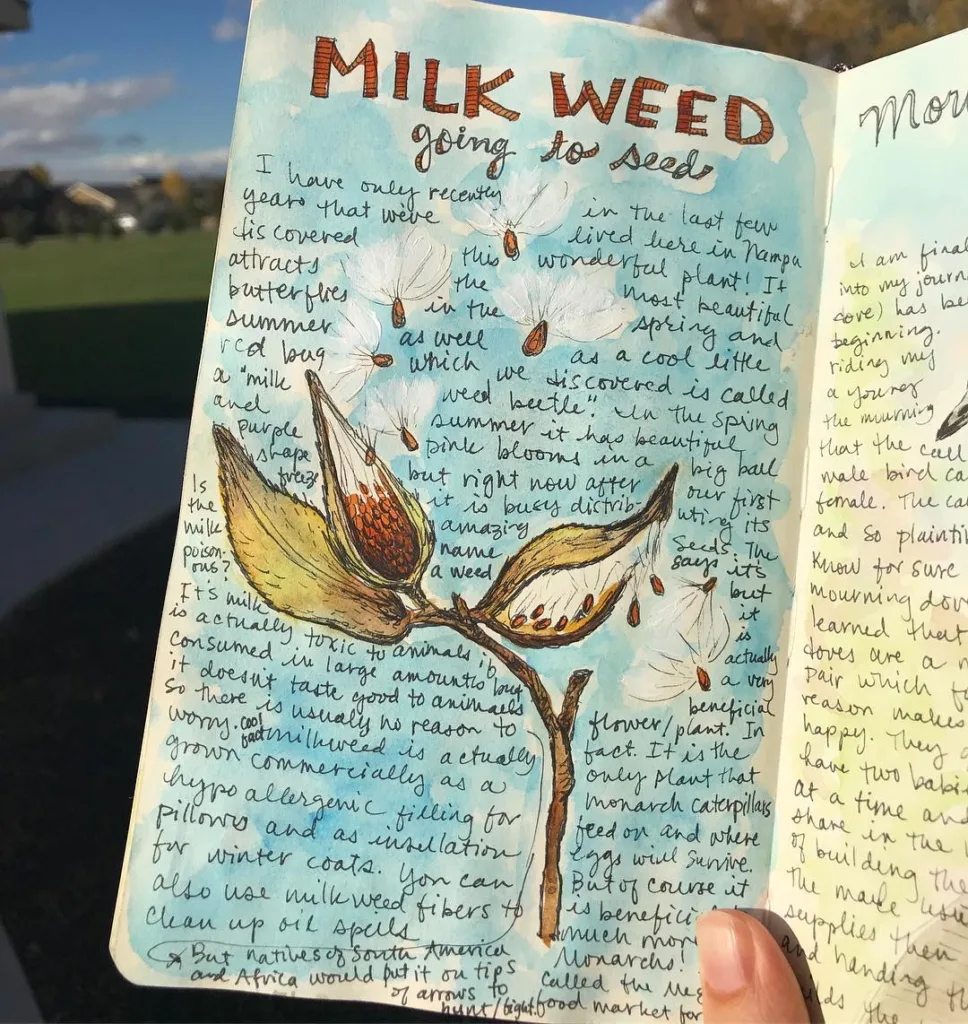 MILK WEED
going to seed
I have only recently in the last few
years that we've lived here in Nampa
discovered this wonderful plant! It
attracts the most beautiful
butterflies in the spring and
summer as well as a cool little
red bug which we discovered is called
a "milk weed beetle". In the spring
and summer it has beautiful
purple pink blooms in a big ball
shape but right now after our first
freeze it is busy distributing its
amazing seeds. The
name says it's
a weed but
it
is
actually
a very
beneficial
flower/plant. In
fact. It is the
only plant that
monarch caterpillars
feed on and where
eggs will survive.
But of course it
is
much more
Monarchs!
called the
food market for
Is
the
milk
poison-
ous?
It's milk
is actually toxic to animals if
consumed in large amounts but
it doesn't taste good to animals
so there is usually no reason to
worry. cool fact milkweed is actually
grown commercially as a
hypo allergenic filling for
pillows and as insullation
for winter coats. You can
also use milkweed fibers to
clean up oil spells
But natives of South America
and Africa would put it on tips
of arrows to
hunt/fight.
I am final
into my journ
dove) has be
beginning.
riding my
a young
the mourning
that the call
male bird ca
female. The ca
and so plainti
know for sure
mourning dov
learned that
doves are a m
pair which f
reason makes
happy. They
have two babi
at a time and
share in the
of building the
the male usu
supplies then
and handing
the